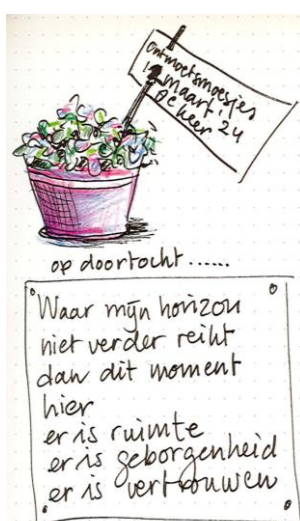 ontmoetsmoesjes
maart '24
de keer
op doortocht......
Waar mijn horizon
niet verder reikt
dan dit moment
hier
er is ruimte
er is geborgenheid
er is vertrouwen